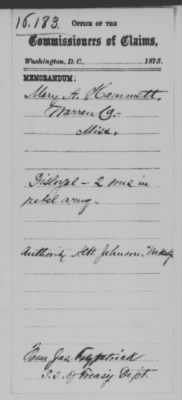 16.183.
OFFICE OF THE
Commissioners of Claims,
Washington, D. C., 1873.
MEMORANDUM:
Mary A. Hammett,
Warren Co.
Miss.
Disloyal - 2 sons in
rebel army -
Authority Johnson.
From Jas. Fitzpatrick
of Treasy Dept.